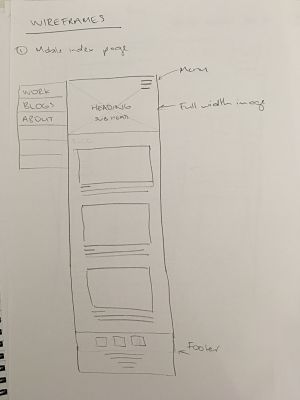 WIREFRAMES
① Mobile index page
WORK
BLOGS
ABOUT
HEADING
SUBHEAD
Menu
Full width image
Footer